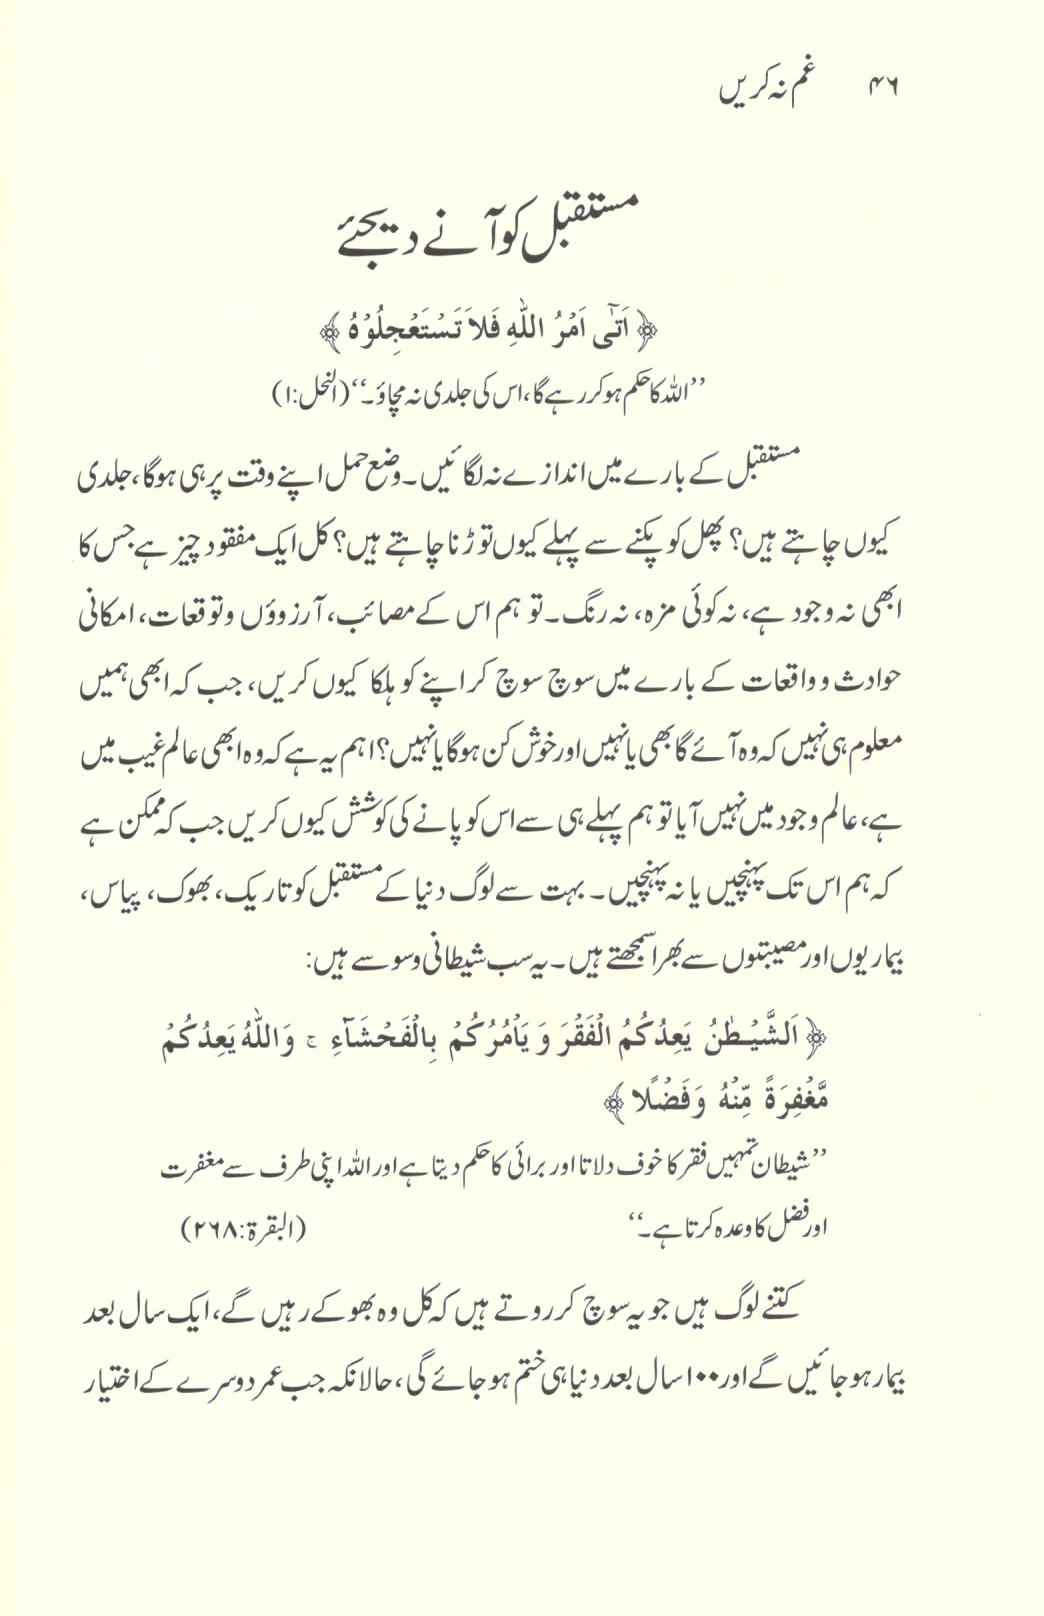 ۴۶ غم نہ کریں
مستقبل کو آنے دیجئے
﴿ اَتٰٓی اَمْرُ اللّٰهِ فَلاَ تَسْتَعْجِلُوْهُ ﴾
’’اللہ کا حکم ہو کر رہے گا، اس کی جلدی نہ مچاؤ۔‘‘ (النحل:۱)
مستقبل کے بارے میں اندازے نہ لگائیں۔ وضع حمل اپنے وقت پر ہی ہوگا، جلدی
کیوں چاہتے ہیں؟ پھل کو پکنے سے پہلے کیوں توڑنا چاہتے ہیں؟ کل ایک مفقود چیز ہے جس کا
ابھی نہ وجود ہے، نہ کوئی مزہ، نہ رنگ۔ تو ہم اس کے مصائب، آرزوؤں و توقعات، امکانی
حوادث و واقعات کے بارے میں سوچ سوچ کر اپنے کو ہلکا کیوں کریں، جب کہ ابھی ہمیں
معلوم ہی نہیں کہ وہ آئے گا بھی یا نہیں اور خوش کن ہوگا یا نہیں؟ اہم یہ ہے کہ وہ ابھی عالم غیب میں
ہے، عالم وجود میں نہیں آیا تو ہم پہلے ہی سے اس کو پانے کی کوشش کیوں کریں جب کہ ممکن ہے
کہ ہم اس تک پہنچیں یا نہ پہنچیں۔ بہت سے لوگ دنیا کے مستقبل کو تاریک، بھوک، پیاس،
بیماریوں اور مصیبتوں سے بھرا سمجھتے ہیں۔ یہ سب شیطانی وسوسے ہیں:
﴿ اَلشَّيْـطٰنُ يَعِدُكُمُ الْفَقْرَ وَ يَاْمُرُكُمْ بِالْفَحْشَآءِ ۚ وَاللّٰهُ يَعِدُكُمْ
مَّغْفِرَةً مِّنْهُ وَفَضْلًا ﴾
’’شیطان تمہیں فقر کا خوف دلاتا اور برائی کا حکم دیتا ہے اور اللہ اپنی طرف سے مغفرت
اور فضل کا وعدہ کرتا ہے۔‘‘ (البقرة:۲۶۸)
کتنے لوگ ہیں جو یہ سوچ کر روتے ہیں کہ کل وہ بھوکے رہیں گے، ایک سال بعد
بیمار ہو جائیں گے اور ۱۰۰ سال بعد دنیا ہی ختم ہو جائے گی، حالانکہ جب عمر دوسرے کے اختیار